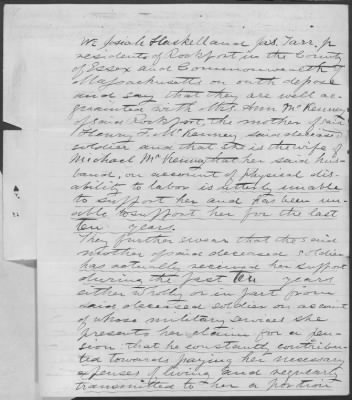 We Josiah Haskell and Jas. Tarr. Jr
residents of Rockport in the County
of Essex and Commonwealth of
Massachusetts on oath depose
and say that they are well ac-
quainted with Mrs. Ann McKenney
of said Rockport, the mother of said
Henry F. McKenney said deceased
soldier and that she is the wife of
Michael McKenney that her said hus-
band, on account of physical dis-
ability to labor is utterly unable
to support her and has been un-
able to support her for the last
ten years.
They further swear that the said
mother of said deceased soldier
has actually received her support
during the past ten years
either wholly or in part from
said deceased soldier on account
of whose military services she
presents her claim for a pen-
sion that he constantly contribu-
ted towards paying her necessary
expenses of living and regularly
transmitted to her a portion